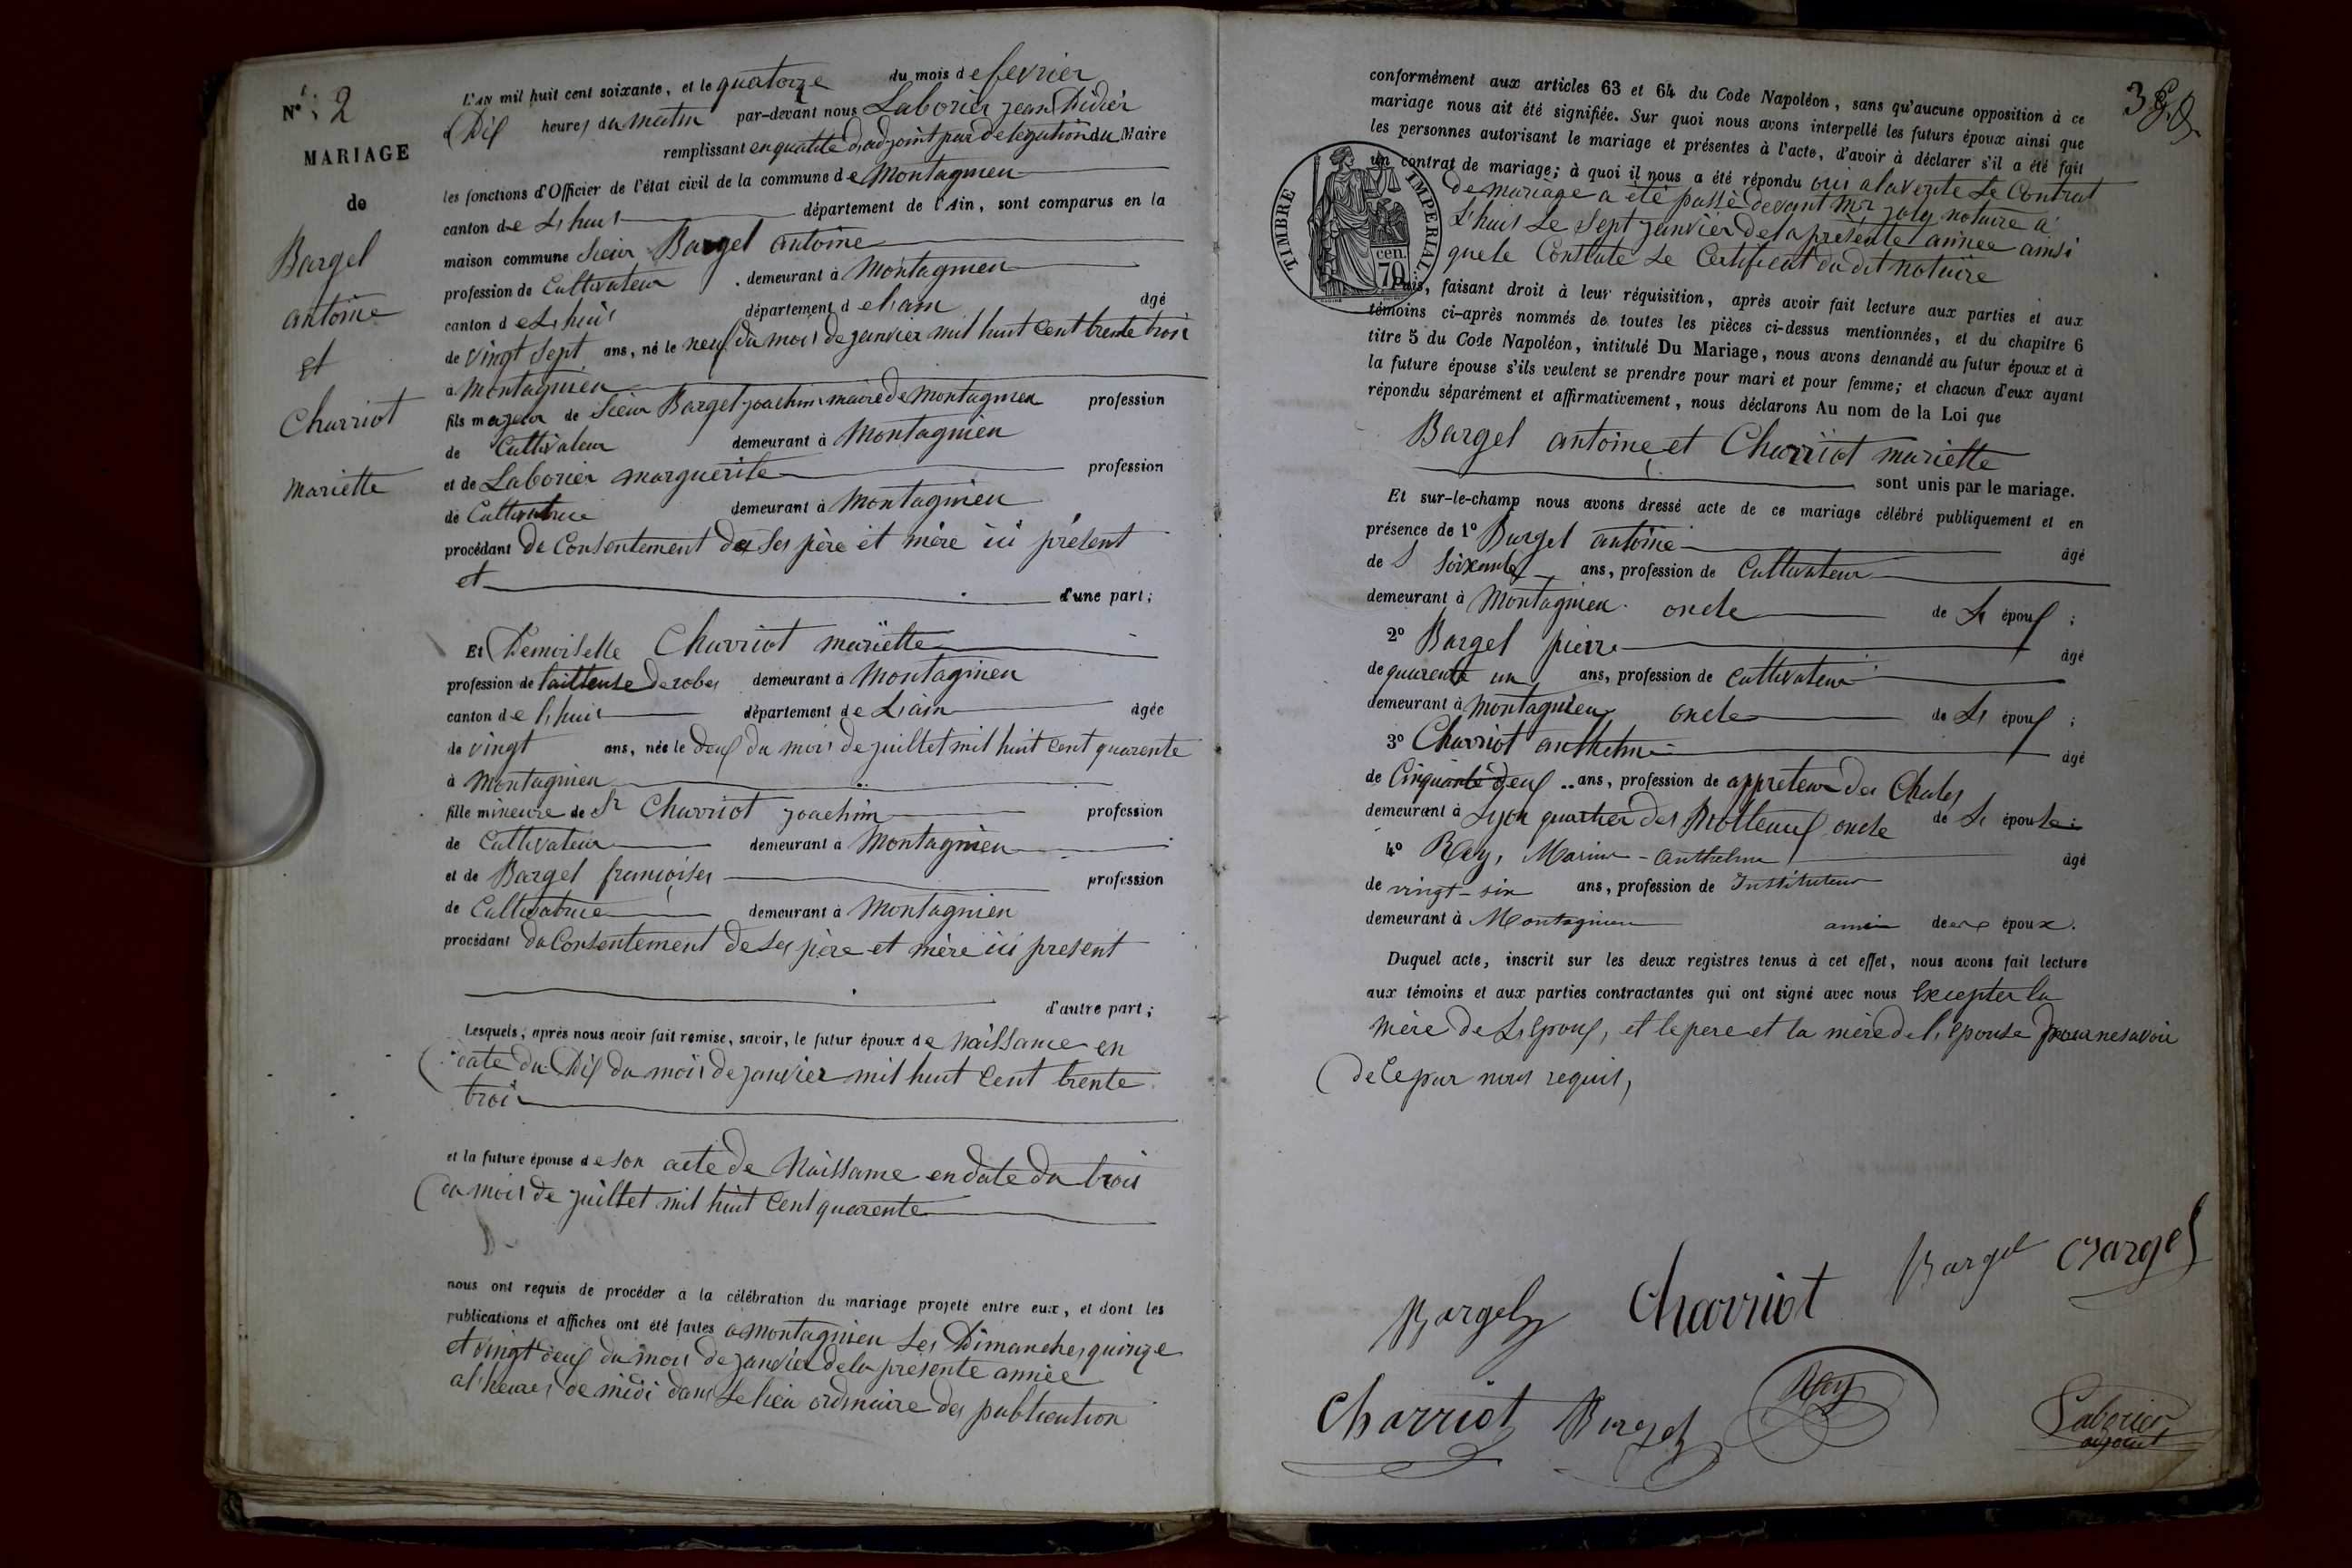 N° 2
MARIAGE
de
Bargel
antoine
et
Charriot
mariette
L'AN mil huit cent soixante, et le quatorze du mois de fevrier
Dix heures du matin par-devant nous Laborier jean Didier
remplissant en qualité d'adjoint par delegation du Maire
les fonctions d'Officier de l'état civil de la commune de Montagnieu
canton de L'huis département de l'Ain, sont comparus en la
maison commune Sieur Bargel antoine
profession de Cultivateur demeurant à Montagnieu
canton de L'huis département de l'ain âgé
de vingt sept ans, né le neuf du mois de janvier mil huit Cent trente trois
à Montagnieu
fils majeur de Sieur Bargel joachim maire de Montagnieu profession
de Cultivateur demeurant à Montagnieu
et de Laborier marguerite profession
de Cultivatrice demeurant à Montagnieu
procédant de Consentement de ses père et mère ici présent
et d'une part;
Et Demoiselle Charriot mariette
profession de tailleuse de robes demeurant à Montagnieu
canton de l'huis département de L'ain âgée
de vingt ans, née le deux du mois de juillet mil huit Cent quarente
à Montagnieu
fille mineure de Sr Charriot joachim profession
de Cultivateur demeurant à Montagnieu
et de Bargel françoise profession
de Cultivatrice demeurant à Montagnieu
procédant du Consentement de ses père et mère ici present
d'autre part;
Lesquels, après nous avoir fait remise, savoir, le futur époux de naissance en
date du Dix du mois de janvier mil huit Cent trente
trois
et la future épouse de son acte de Naissance en date du trois
du mois de juillet mil huit Cent quarente
nous ont requis de procéder à la célébration du mariage projeté entre eux, et dont les
publications et affiches ont été faites a Montagnieu Les Dimanches quinze
et vingt deux du mois de janvier de la présente année
a l'heures de midi dans Le lieu ordinaire des publication
conformément aux articles 63 et 64 du Code Napoléon, sans qu'aucune opposition à ce
mariage nous ait été signifiée. Sur quoi nous avons interpellé les futurs époux ainsi que
les personnes autorisant le mariage et présentes à l'acte, d'avoir à déclarer s'il a été fait
un contrat de mariage; à quoi il nous a été répondu oui a la verite Le Contrat
de mariage a été passé devant Mr joly notaire a
L'huis Le Sept janvier de la présente année ainsi
que le Constate Le Certificat du dit notaire
TIMBRE IMPERIAL
70 cen.
Puis, faisant droit à leur réquisition, après avoir fait lecture aux parties et aux
témoins ci-après nommés de toutes les pièces ci-dessus mentionnées, et du chapitre 6
titre 5 du Code Napoléon, intitulé Du Mariage, nous avons demandé au futur époux et à
la future épouse s'ils veulent se prendre pour mari et pour femme; et chacun d'eux ayant
répondu séparément et affirmativement, nous déclarons Au nom de la Loi que
Bargel antoine et Charriot mariette
sont unis par le mariage.
Et sur-le-champ nous avons dressé acte de ce mariage célébré publiquement et en
présence de 1° Bargel antoine âgé
de Soixante ans, profession de Cultivateur
demeurant à Montagnieu oncle de L' époux ;
2° Bargel pierre âgé
de quarente un ans, profession de Cultivateur
demeurant à Montagnieu oncle de L' époux ;
3° Charriot anthelme âgé
de Cinquante deux ans, profession de appreteur des Chales
demeurant à Lyon quartier des Brotteaux oncle de L' épouse ;
4° Rey, Marius-Anthelme âgé
de vingt-six ans, profession de Instituteur
demeurant à Montagnieu ami des époux.
Duquel acte, inscrit sur les deux registres tenus à cet effet, nous avons fait lecture
aux témoins et aux parties contractantes qui ont signé avec nous Excepter la
mère de L'Epoux, et le pere et la mère de l'epouse pour ne savoir
de Ce par nous requis,
Bargel Charriot Bargel Bargel
Charriot Bargel Rey Laborier
adjoint